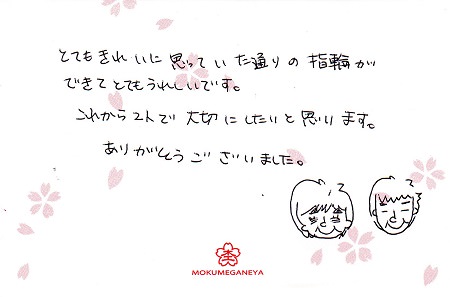 とてもきれいに思っていた通りの指輪が
できてとてもうれしいです。
これから2人で大切にしたいと思います。
ありがとうございました。
MOKUMEGANEYA